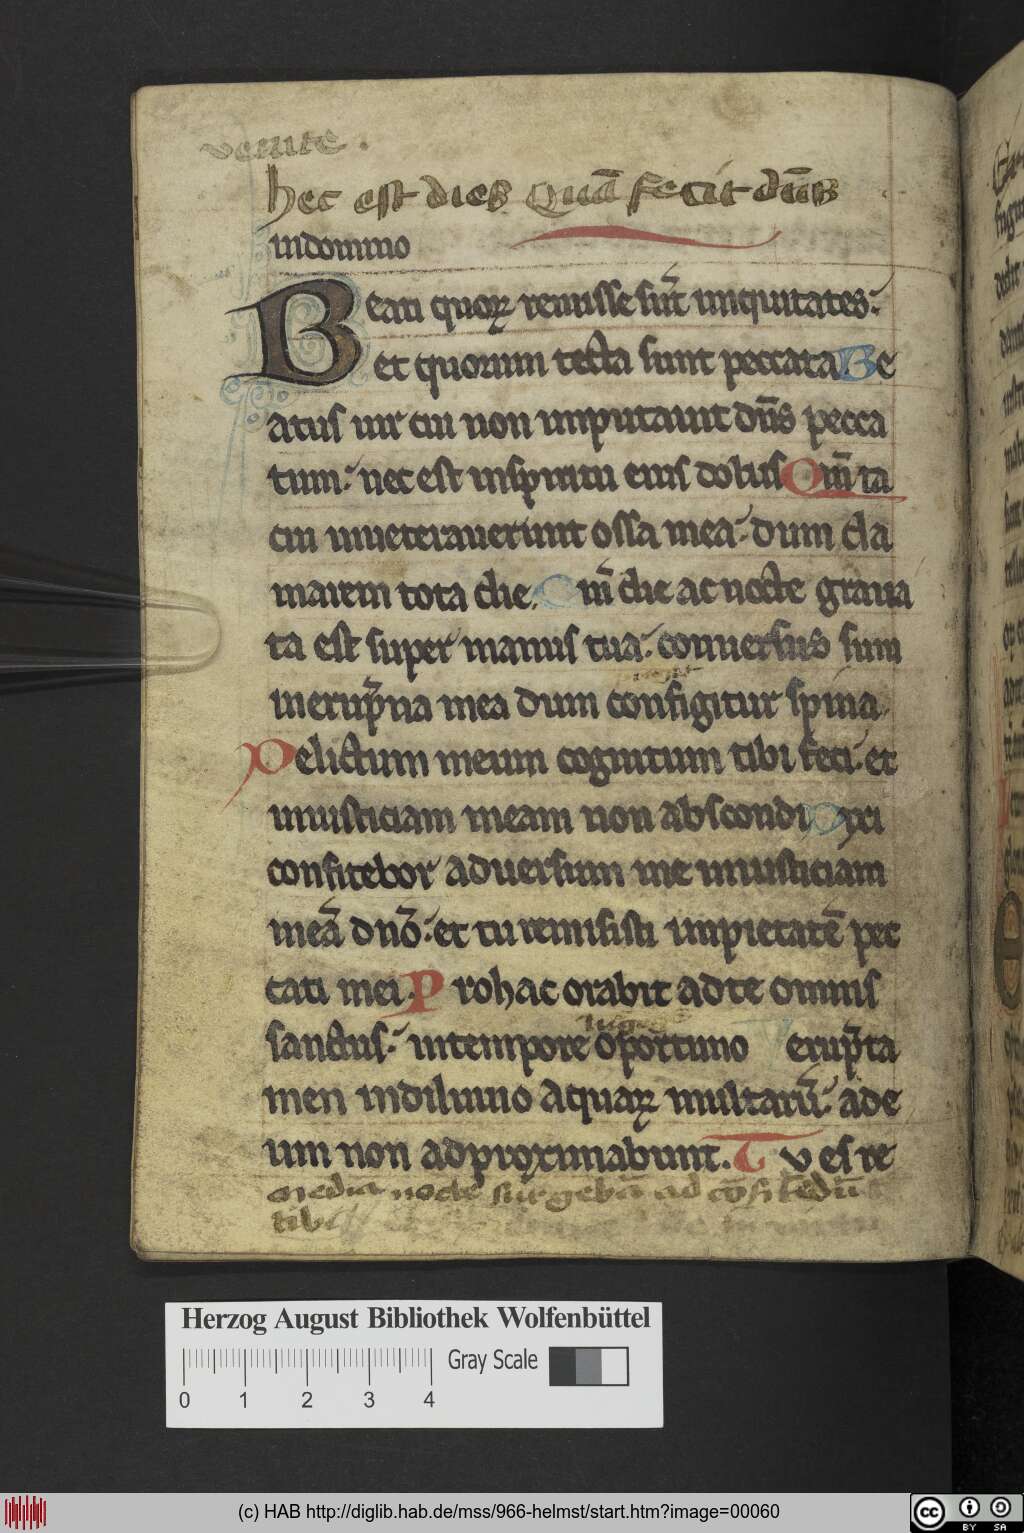 venite.
hec est dies Quā fecit dn̄s
indomino
Beati quoꝝ remisse sūt iniquitates.
et quorum tecta sunt peccata. Be
atus uir cui non imputauit dn̄s pecca
tum. nec est inspiritu eius dolus Qm̄ ta
cui inueterauerunt ossa mea. dum cla
marem tota die. Qm̄ die ac nocte graua
ta est super manus tua. conuersus sum
inerūpna mea dum configitur spina
Delictum meum cognitum tibi feci. et
iniusticiam meam non abscondi Dixi
confitebor aduersum me iniusticiam
meā dn̄o. et tu remisisti impietatē pec
cati mei. Pro hac orabit adte omnis
sanctus. intempore oportuno Verūpta
men indiluuio aquaꝝ multarū. ade
um non adproximabunt. Tu es re
media nocte surgebā ad cōfitēdū
tibi
Herzog August Bibliothek Wolfenbüttel
Gray Scale
0 1 2 3 4
(c) HAB http://diglib.hab.de/mss/966-helmst/start.htm?image=00060
cc BY SA